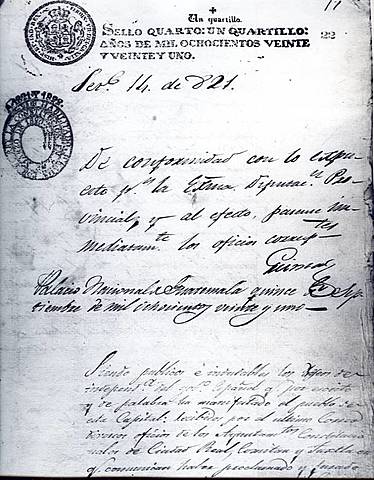 17
Un quartillo.
SELLO QUARTO: UN QUARTILLO:
AÑOS DE MIL OCHOCIENTOS VEINTE
Y VEINTE Y UNO.
22
Sepe. 14. de 821.
De conformidad con lo expu-
esto pr. la Exma. Diputacn. Pro-
vincial, y al efecto, pasense in-
mediatamte. los oficios corresptes
Palacio Nacional de Guatemala quince de Sep-
tiembre de mil ochocientos veinte y uno
Siendo publicos e indudables los deseos de
independa. del gobo. Español q. por escrito
y de palabra ha manifestado el pueblo de
esta Capital: recibidos por el ultimo Correo
diversos oficios de los Ayuntamtos. Constitucio-
nales de Ciudad Real, Comitan y Tuxtla en
q. comunican haber proclamado y jurado